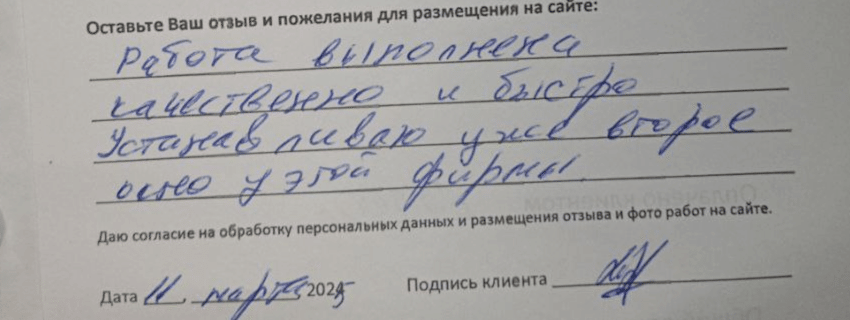 Оставьте Ваш отзыв и пожелания для размещения на сайте:
Работа выполнена
качественно и быстро
Устанавливаю уже второе
окно у этой фирмы.
Даю согласие на обработку персональных данных и размещения отзыва и фото работ на сайте.
Дата 11 марта 2025 Подпись клиента